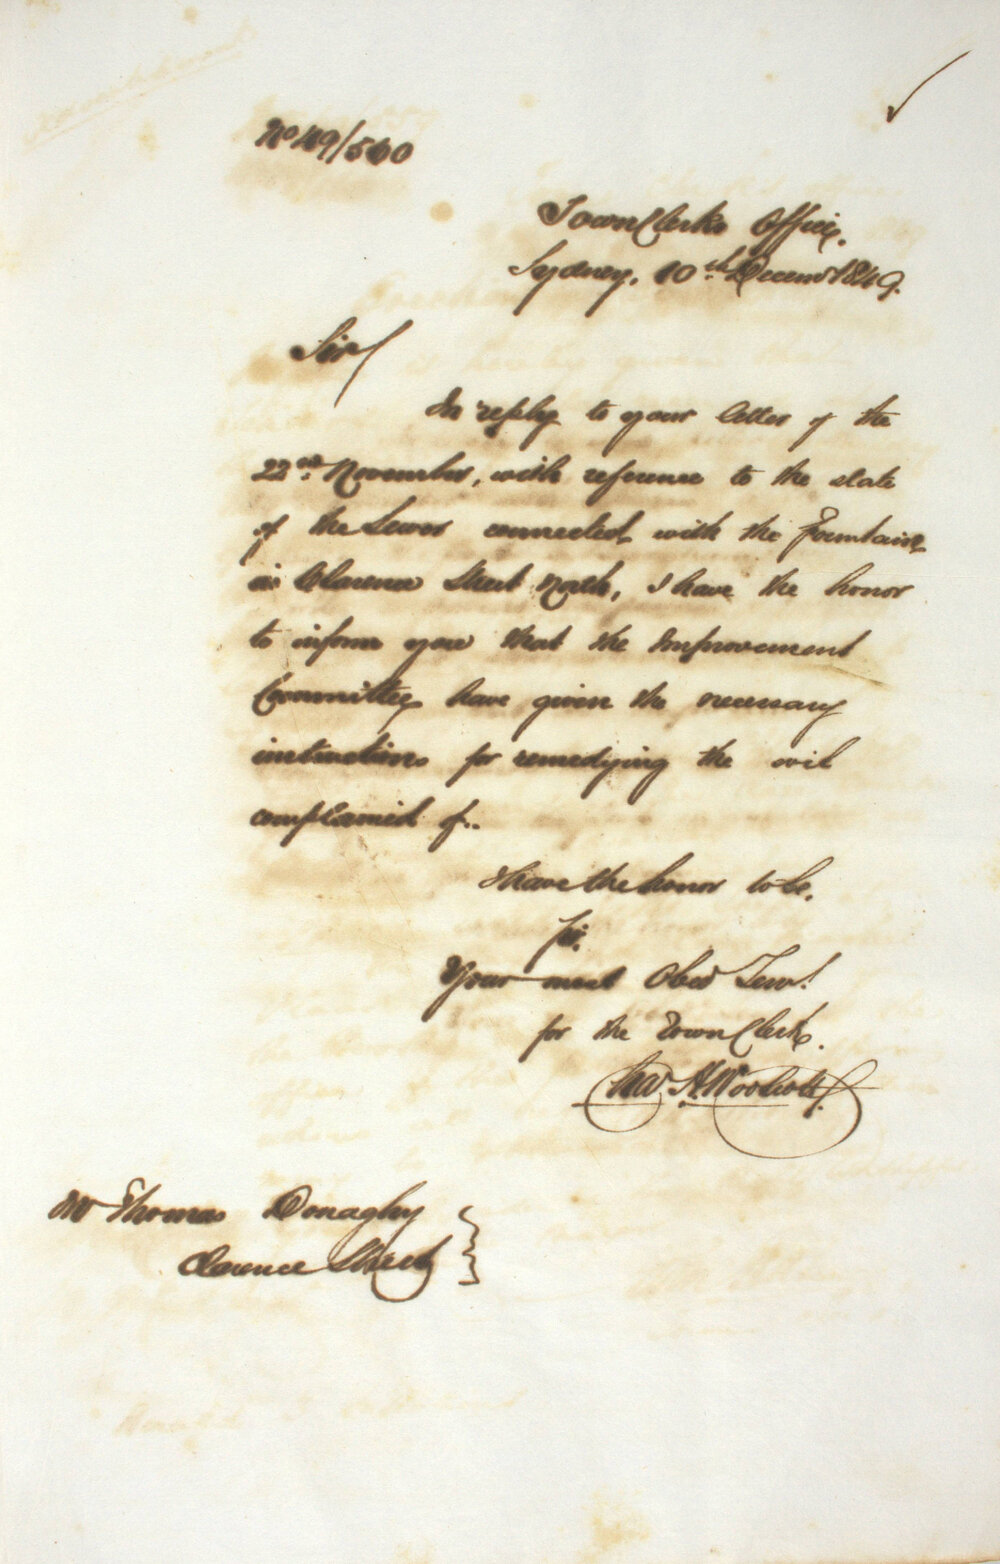 No 49/560
Town Clerks Office,
Sydney, 10th Decemr 1849.
Sir/
In reply to your letter of the
22nd November, with reference to the state
of the Sewer connected with the Fountain
in Clarence Street North, I have the honor
to inform you that the Improvement
Committee have given the necessary
instructions for remedying the evil
complained of.
I have the honor to be,
Sir,
Your most Obed Serv!
for the Town Clerk.
H. Woolcott
Mr Thomas Donaghy
Clarence Street